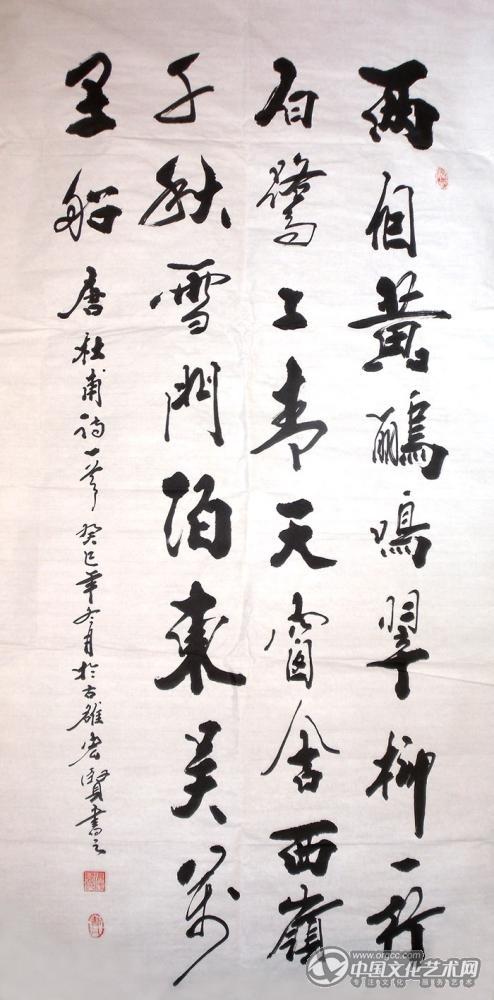 兩個黄鸝鳴翠柳一行
白鷺上青天窗含西嶺
千秋雪門泊東吴萬
里船
唐杜甫詩一首癸巳年冬月於古雄宏賢書之
中国文化艺术网
www.orgcc.com
专注文化 服务艺术